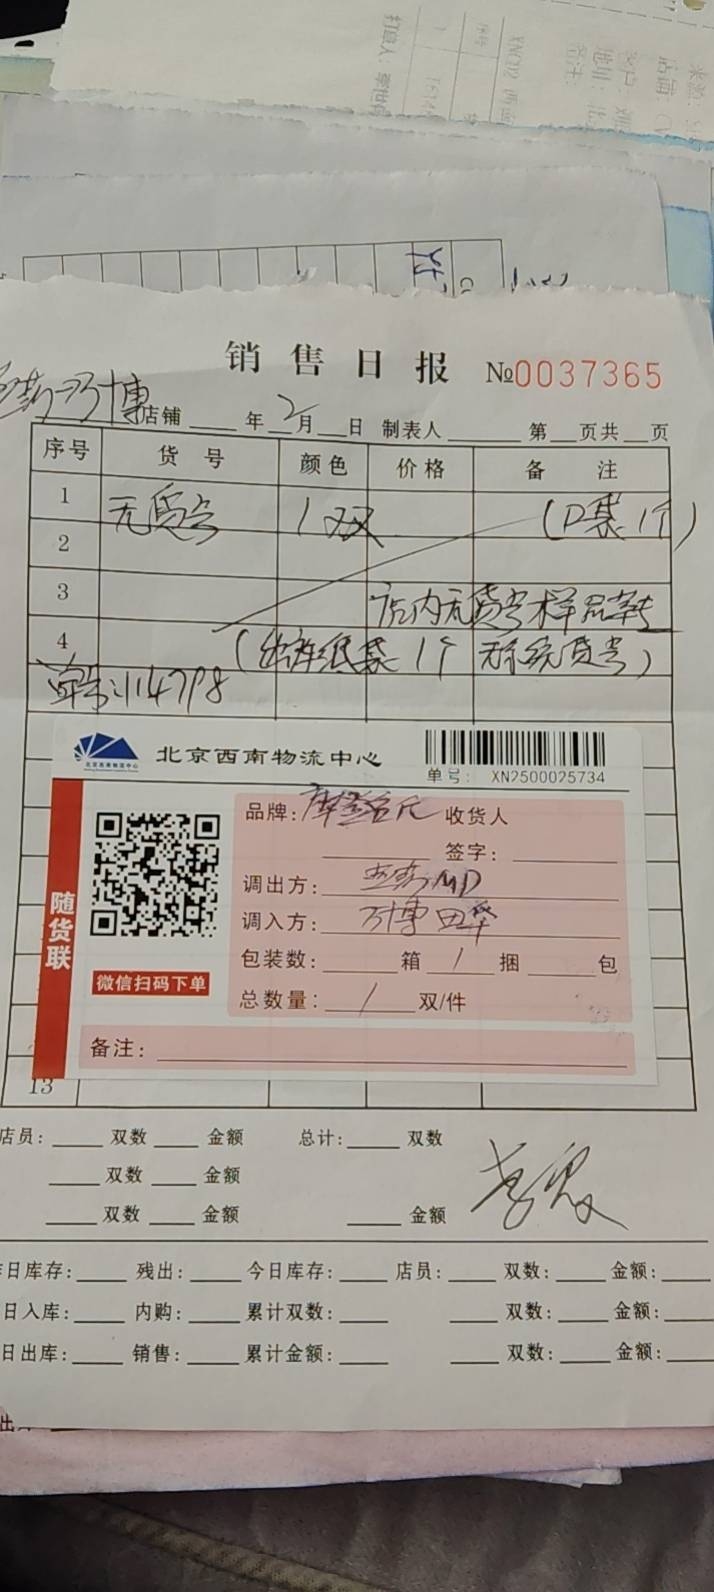 销售日报 №0037365
店铺 ____ 年 2月 __日 制表人 ____ 第__页共__页
序号 货号 颜色 价格 备注
1 无货号 1双 (D袋1个)
2
3 店内无货号样品鞋
4 (出库纸袋1个 无系统货号)
单号:114798
北京西南物流中心
单号: XN2500025734
品牌: 收货人
签字:
调出方: MD
调入方: 万博
包装数: ____ 箱 1 捆 ____ 包
总数量: 1 双/件
随货联
微信扫码下单
备注:
13
店员: ____ 双数 ____ 金额 总计: ____ 双数
____ 双数 ____ 金额
____ 双数 ____ 金额 ____ 金额
日库存: ____ 残出: ____ 今日库存: ____ 店员: ____ 双数: ____ 金额: ____
日入库: ____ 内购: ____ 累计双数: ____ ____ 双数: ____ 金额: ____
日出库: ____ 销售: ____ 累计金额: ____ ____ 双数: ____ 金额: ____